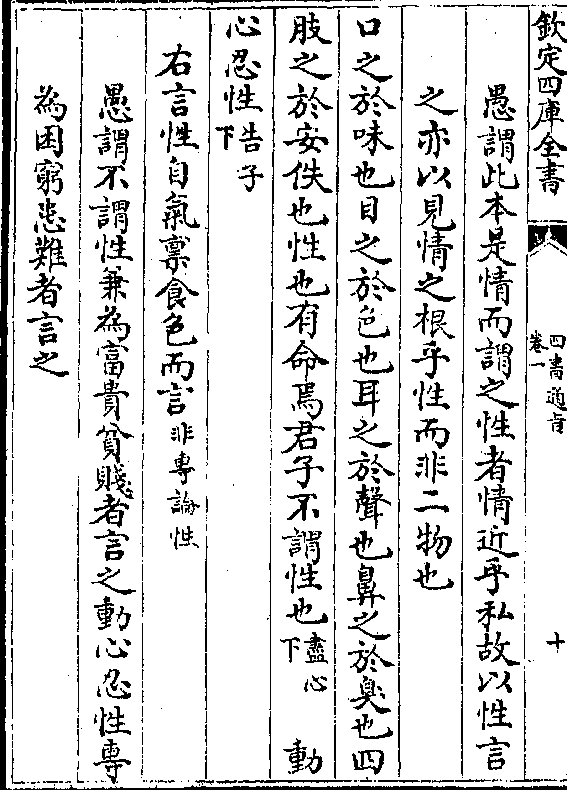 欽定四庫全書
四書通旨
卷一
十
愚謂此本是情而謂之性者情近乎私故以性言
之亦以見情之根乎性而非二物也
口之於味也目之於色也耳之於聲也鼻之於臭也四
肢之於安佚也性也有命焉君子不謂性也盡心下 動
心忍性告子下
右言性自氣稟食色而言非專論性
愚謂不謂性兼為富貴貧賤者言之動心忍性專
為困窮患難者言之